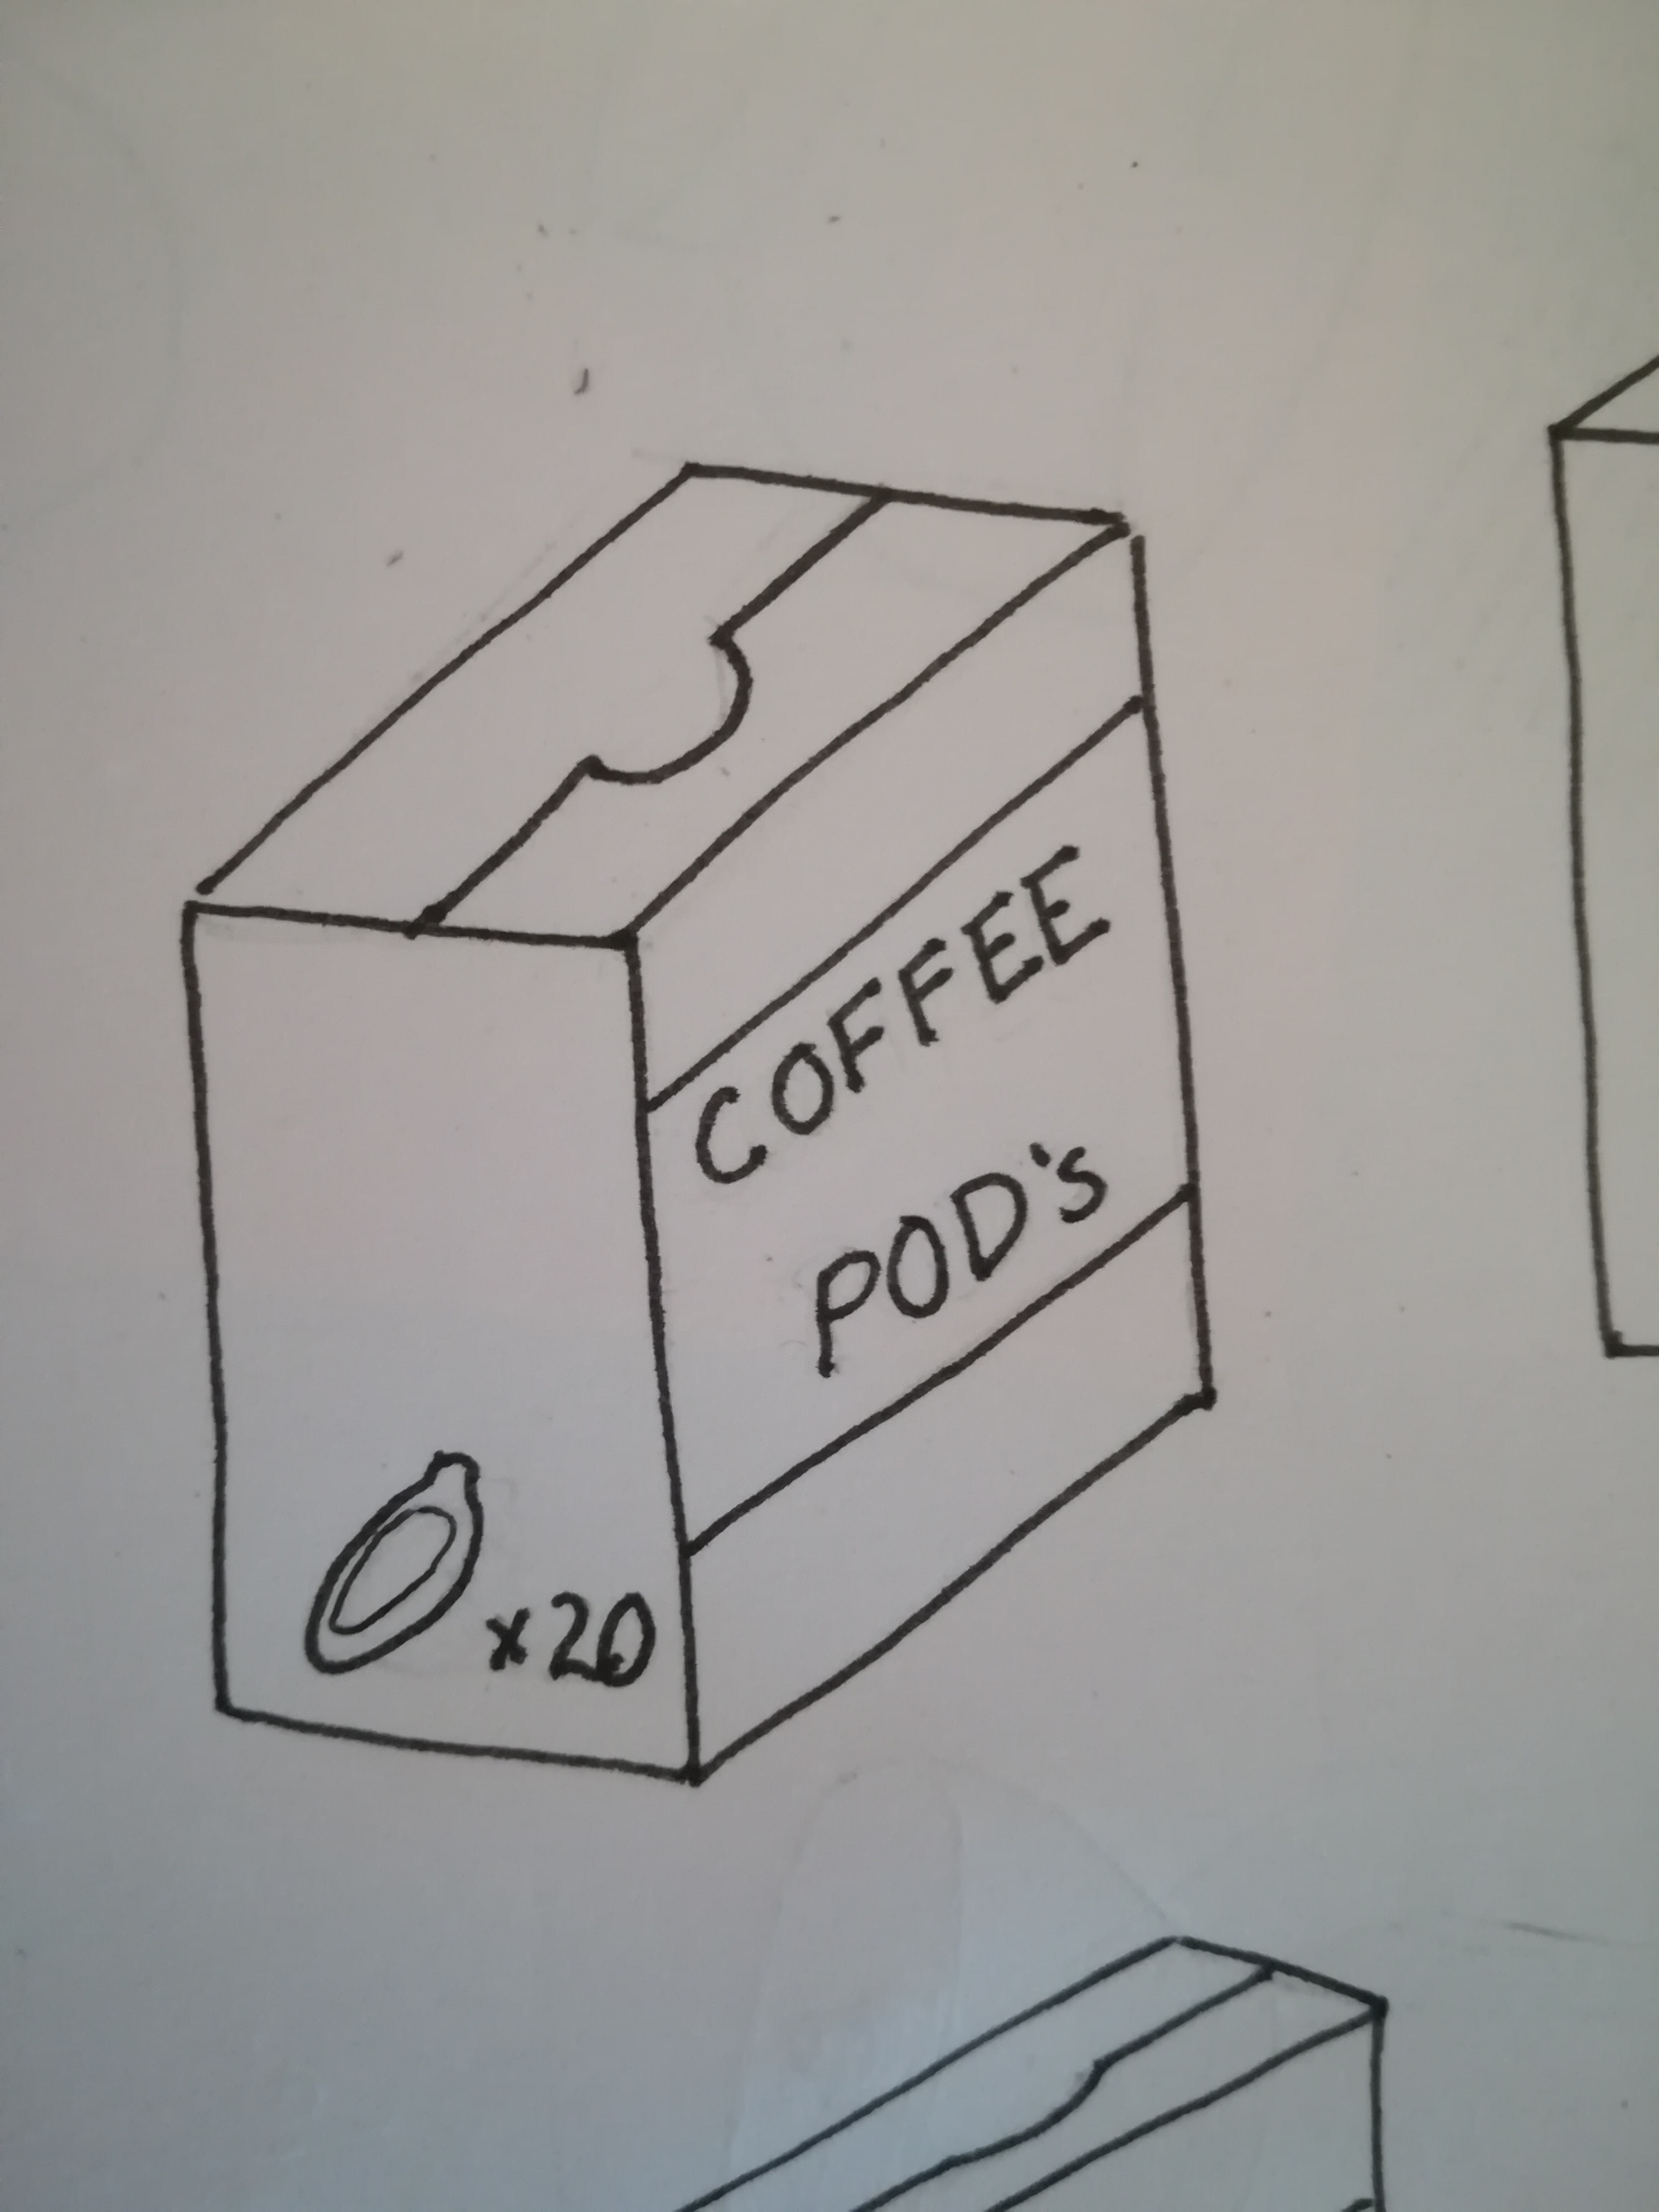 COFFEE
POD's
x20